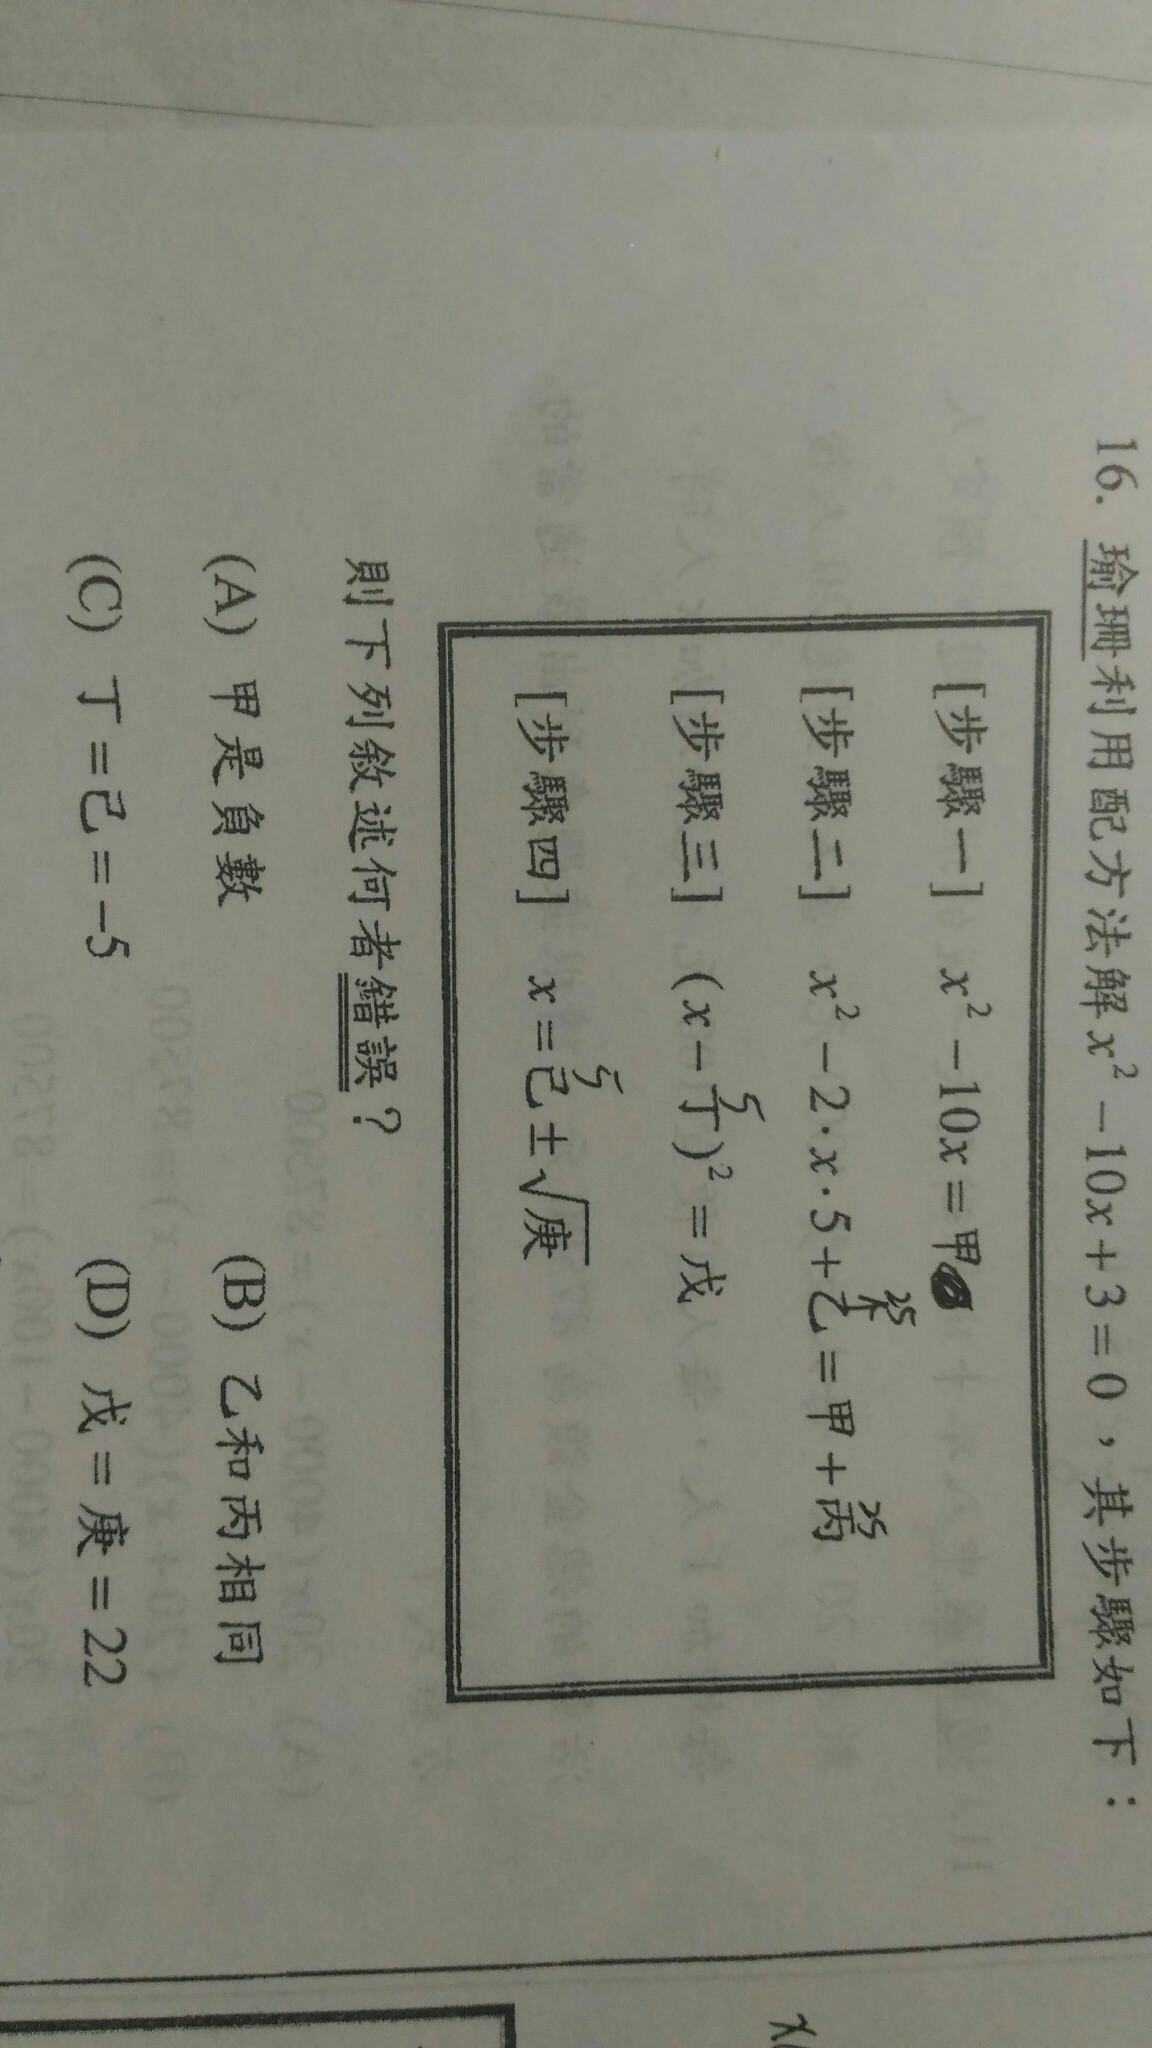 16. 瑜珊利用配方法解x² − 10x + 3 = 0，其步驟如下：
[步驟一] x² − 10x = 甲
[步驟二] x² − 2 · x · 5 + 乙 = 甲 + 丙
25 25
[步驟三] (x − 丁)² = 戊
5
[步驟四] x = 己 ± √庚
5
則下列敘述何者錯誤？
(A) 甲是負數 (B) 乙和丙相同
(C) 丁 = 己 = −5 (D) 戊 = 庚 = 22